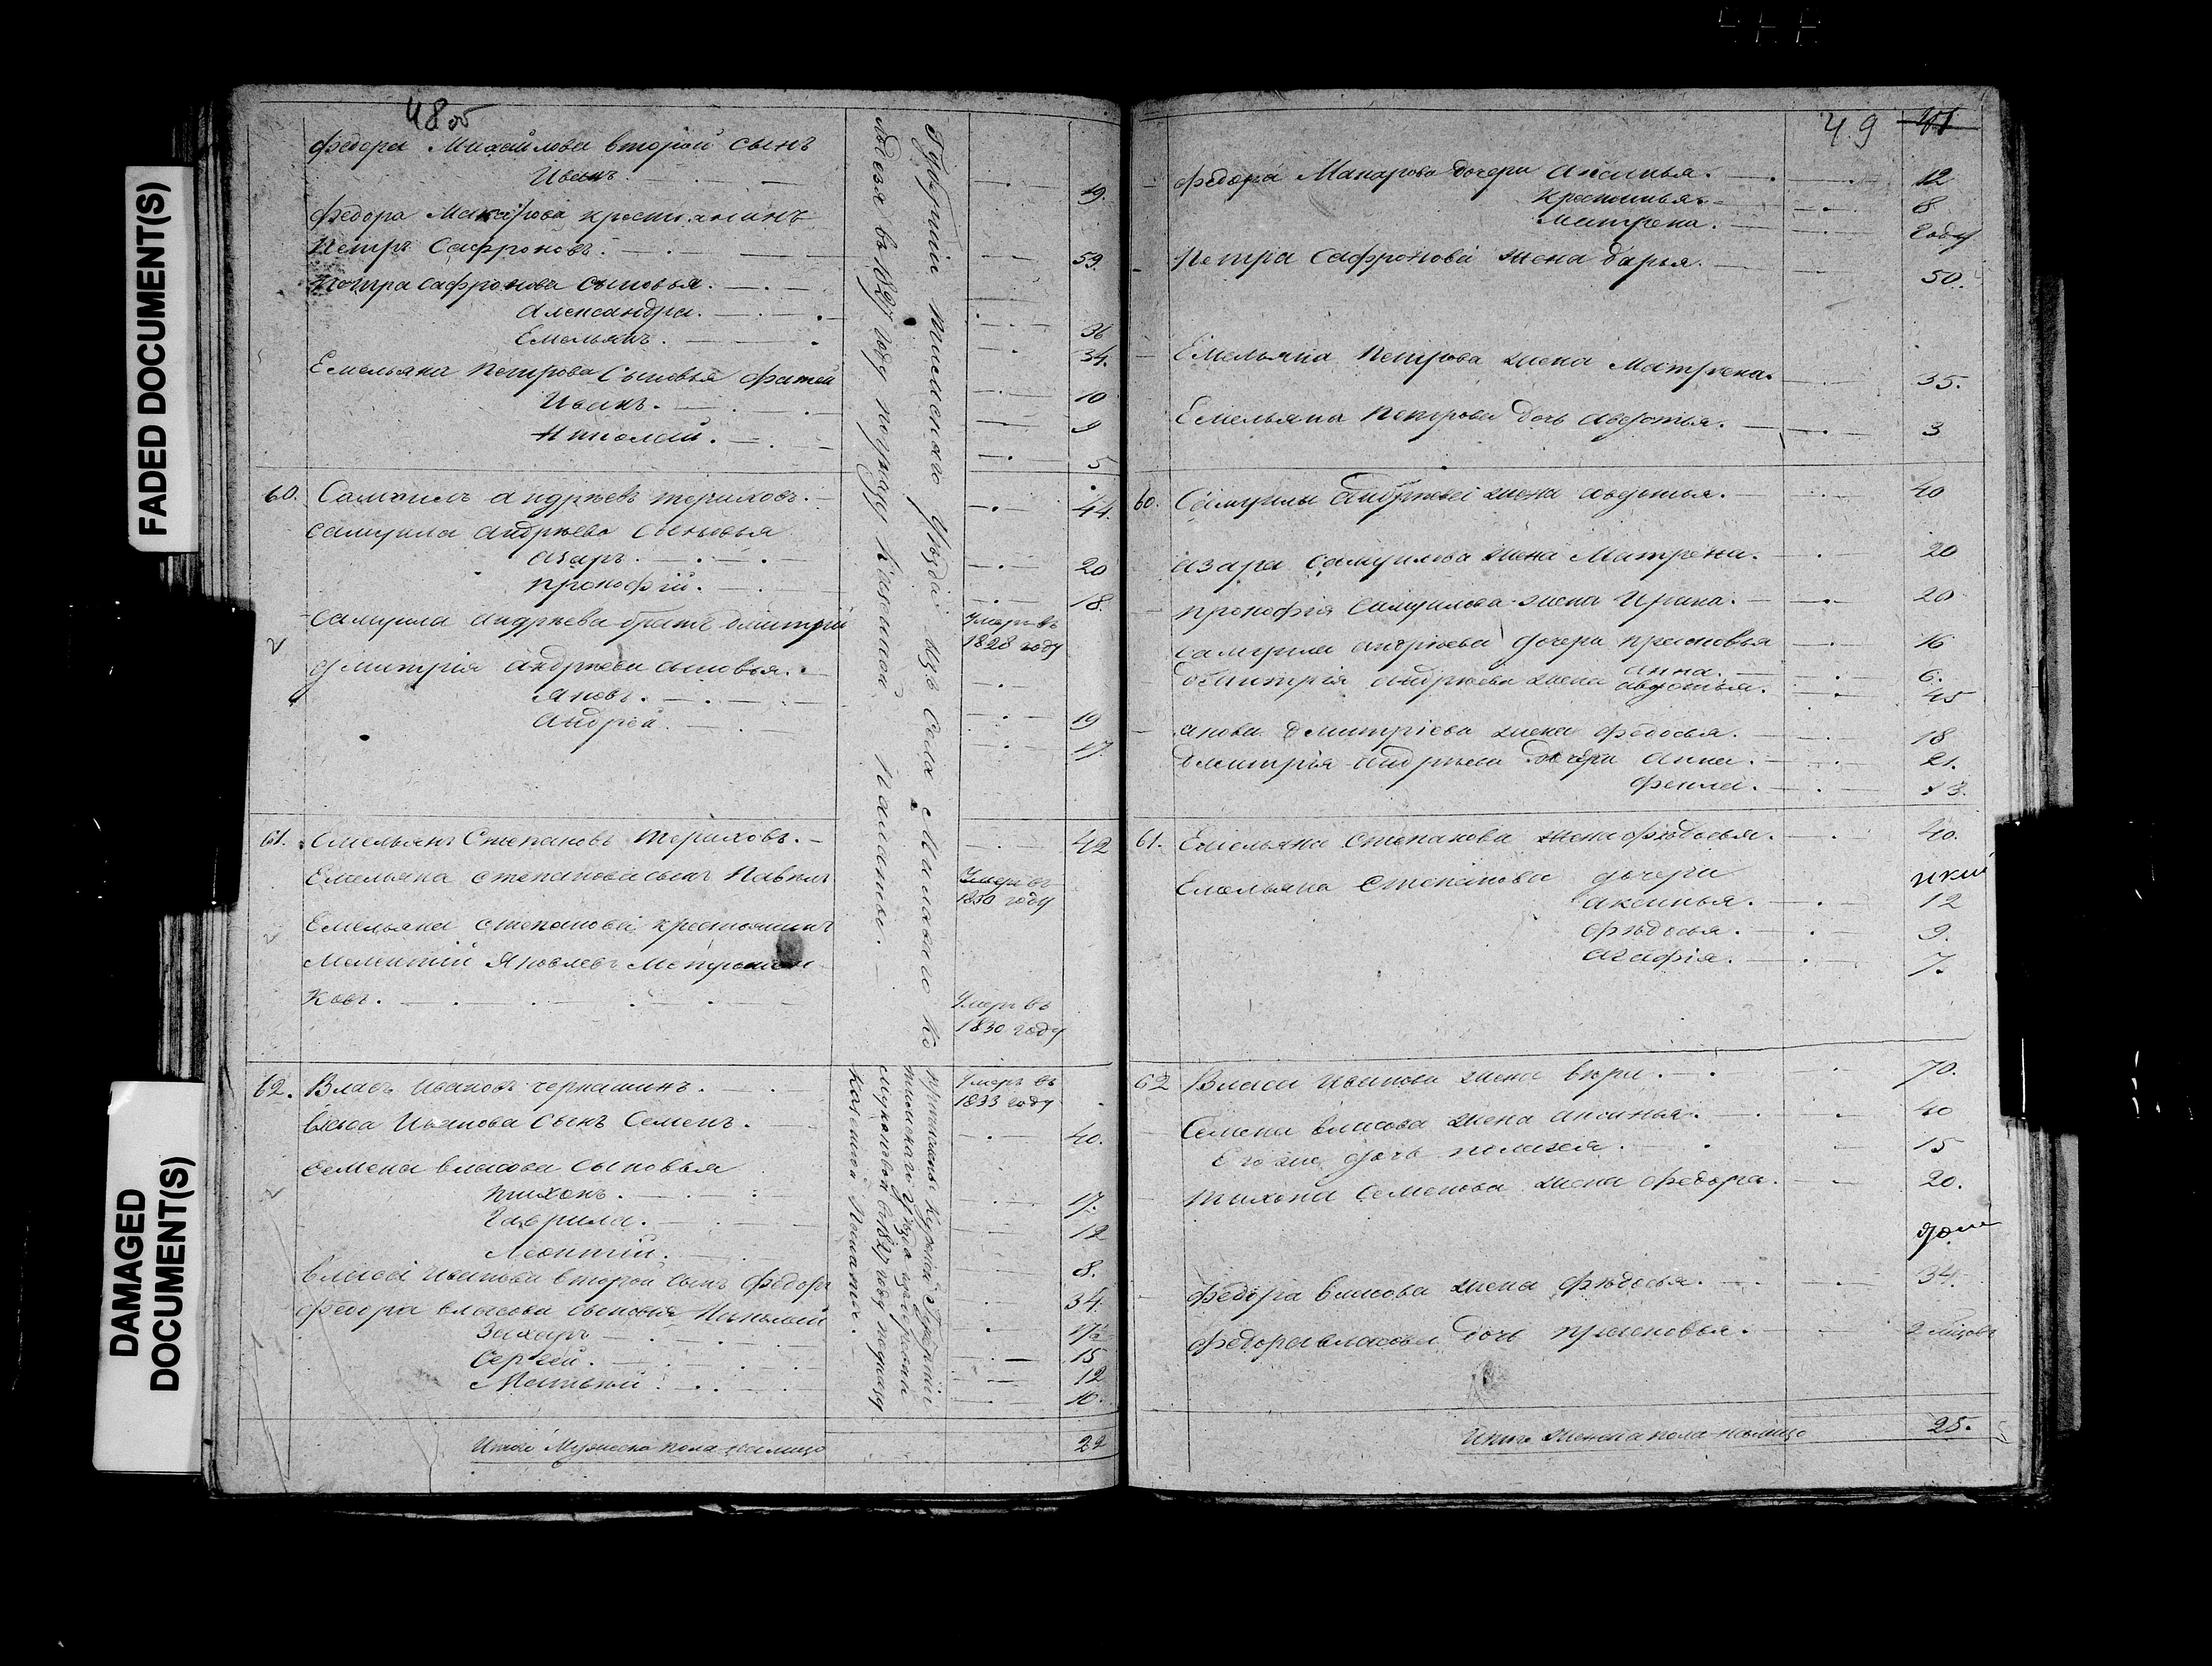 48 об
Федора Михайлова второй сынъ
Иванъ. 19.
Федора Макарова крестьянинъ
Петръ Сафроновъ. 59.
Петра Сафронова сыновья.
Александра. 36
Емельянъ. 34.
Емельяна Петрова сыновья Фатей 10
Иванъ. 9
Николай. 5
60. Самуилъ Андреевъ Териховъ. 44.
Самуила Андрѣева сыновья
Азаръ. 20
Прокофій. 18.
Самуила Андрѣева братъ Дмитрій Умеръ въ
1828 году
Дмитрія Андрѣева сыновья.
Яковъ. 19
Андрей. 17.
61. Емельянъ Степановъ Териховъ. 42
Емельяна Степанова сынъ Павелъ Умеръ въ
1830 году
Емельяна Степанова крестьянинъ
Мелентій Яковлевъ
ковъ. Умеръ въ
1830 году
62. Власъ Ивановъ Чернашинъ. Умеръ въ
1833 году
Власа Иванова сынъ Семенъ. 40.
Семена Власова сыновья
Тихонъ. 17.
Гаврила. 12
Леонтій. 8.
Власа Иванова второй сынъ Федоръ 34.
Федора Власова сыновья Николай 17½
Захаръ 15
Сергей. 12
Матвей. 10.
Итого Мужеска пола на лицо 22
Губерніи уѣзда изъ села Малаго
въ 1827 году по указу Казенной Палаты.
причислены Курской Губерніи
уѣзда
въ 1827 году по указу
Казенной Палаты.
49
Федора Макарова дочери Аксинья. 12
8
Матрена. году
Петра Сафронова жена Дарья. 50.
Емельяна Петрова жена Матрена. 35.
Емельяна Петрова дочь Авдотья. 3
60. Самуила Андрѣева жена Авдотья. 40
Азара Самуилова жена Матрена. 20
Прокофія Самуилова жена Ирина. 20
Самуила Андрѣева дочери Прасковья 16
Анна. 6.
Дмитрія Андрѣева жена Авдотья. 45
Якова Дмитріева жена Федосья. 18
Дмитрія Андрѣева дочери Анна. 21.
Фекла. 13.
61. Емельяна Степанова жена Фѣдосья. 40.
Емельяна Степанова дочери
Аксинья. 12
Фѣдосья. 9.
Агафія. 7.
62 Власа Иванова жена Вѣра. 70.
Семена Власова жена Аксинья. 40
Его же дочь Пелагея. 15
Тихона Семенова жена Федора. 20.
Федора Власова жена Фѣдосья. 34.
Федора Власова дочь Прасковья.
Итого женска пола на лицо 25.
FADED DOCUMENT(S)
DAMAGED
DOCUMENT(S)